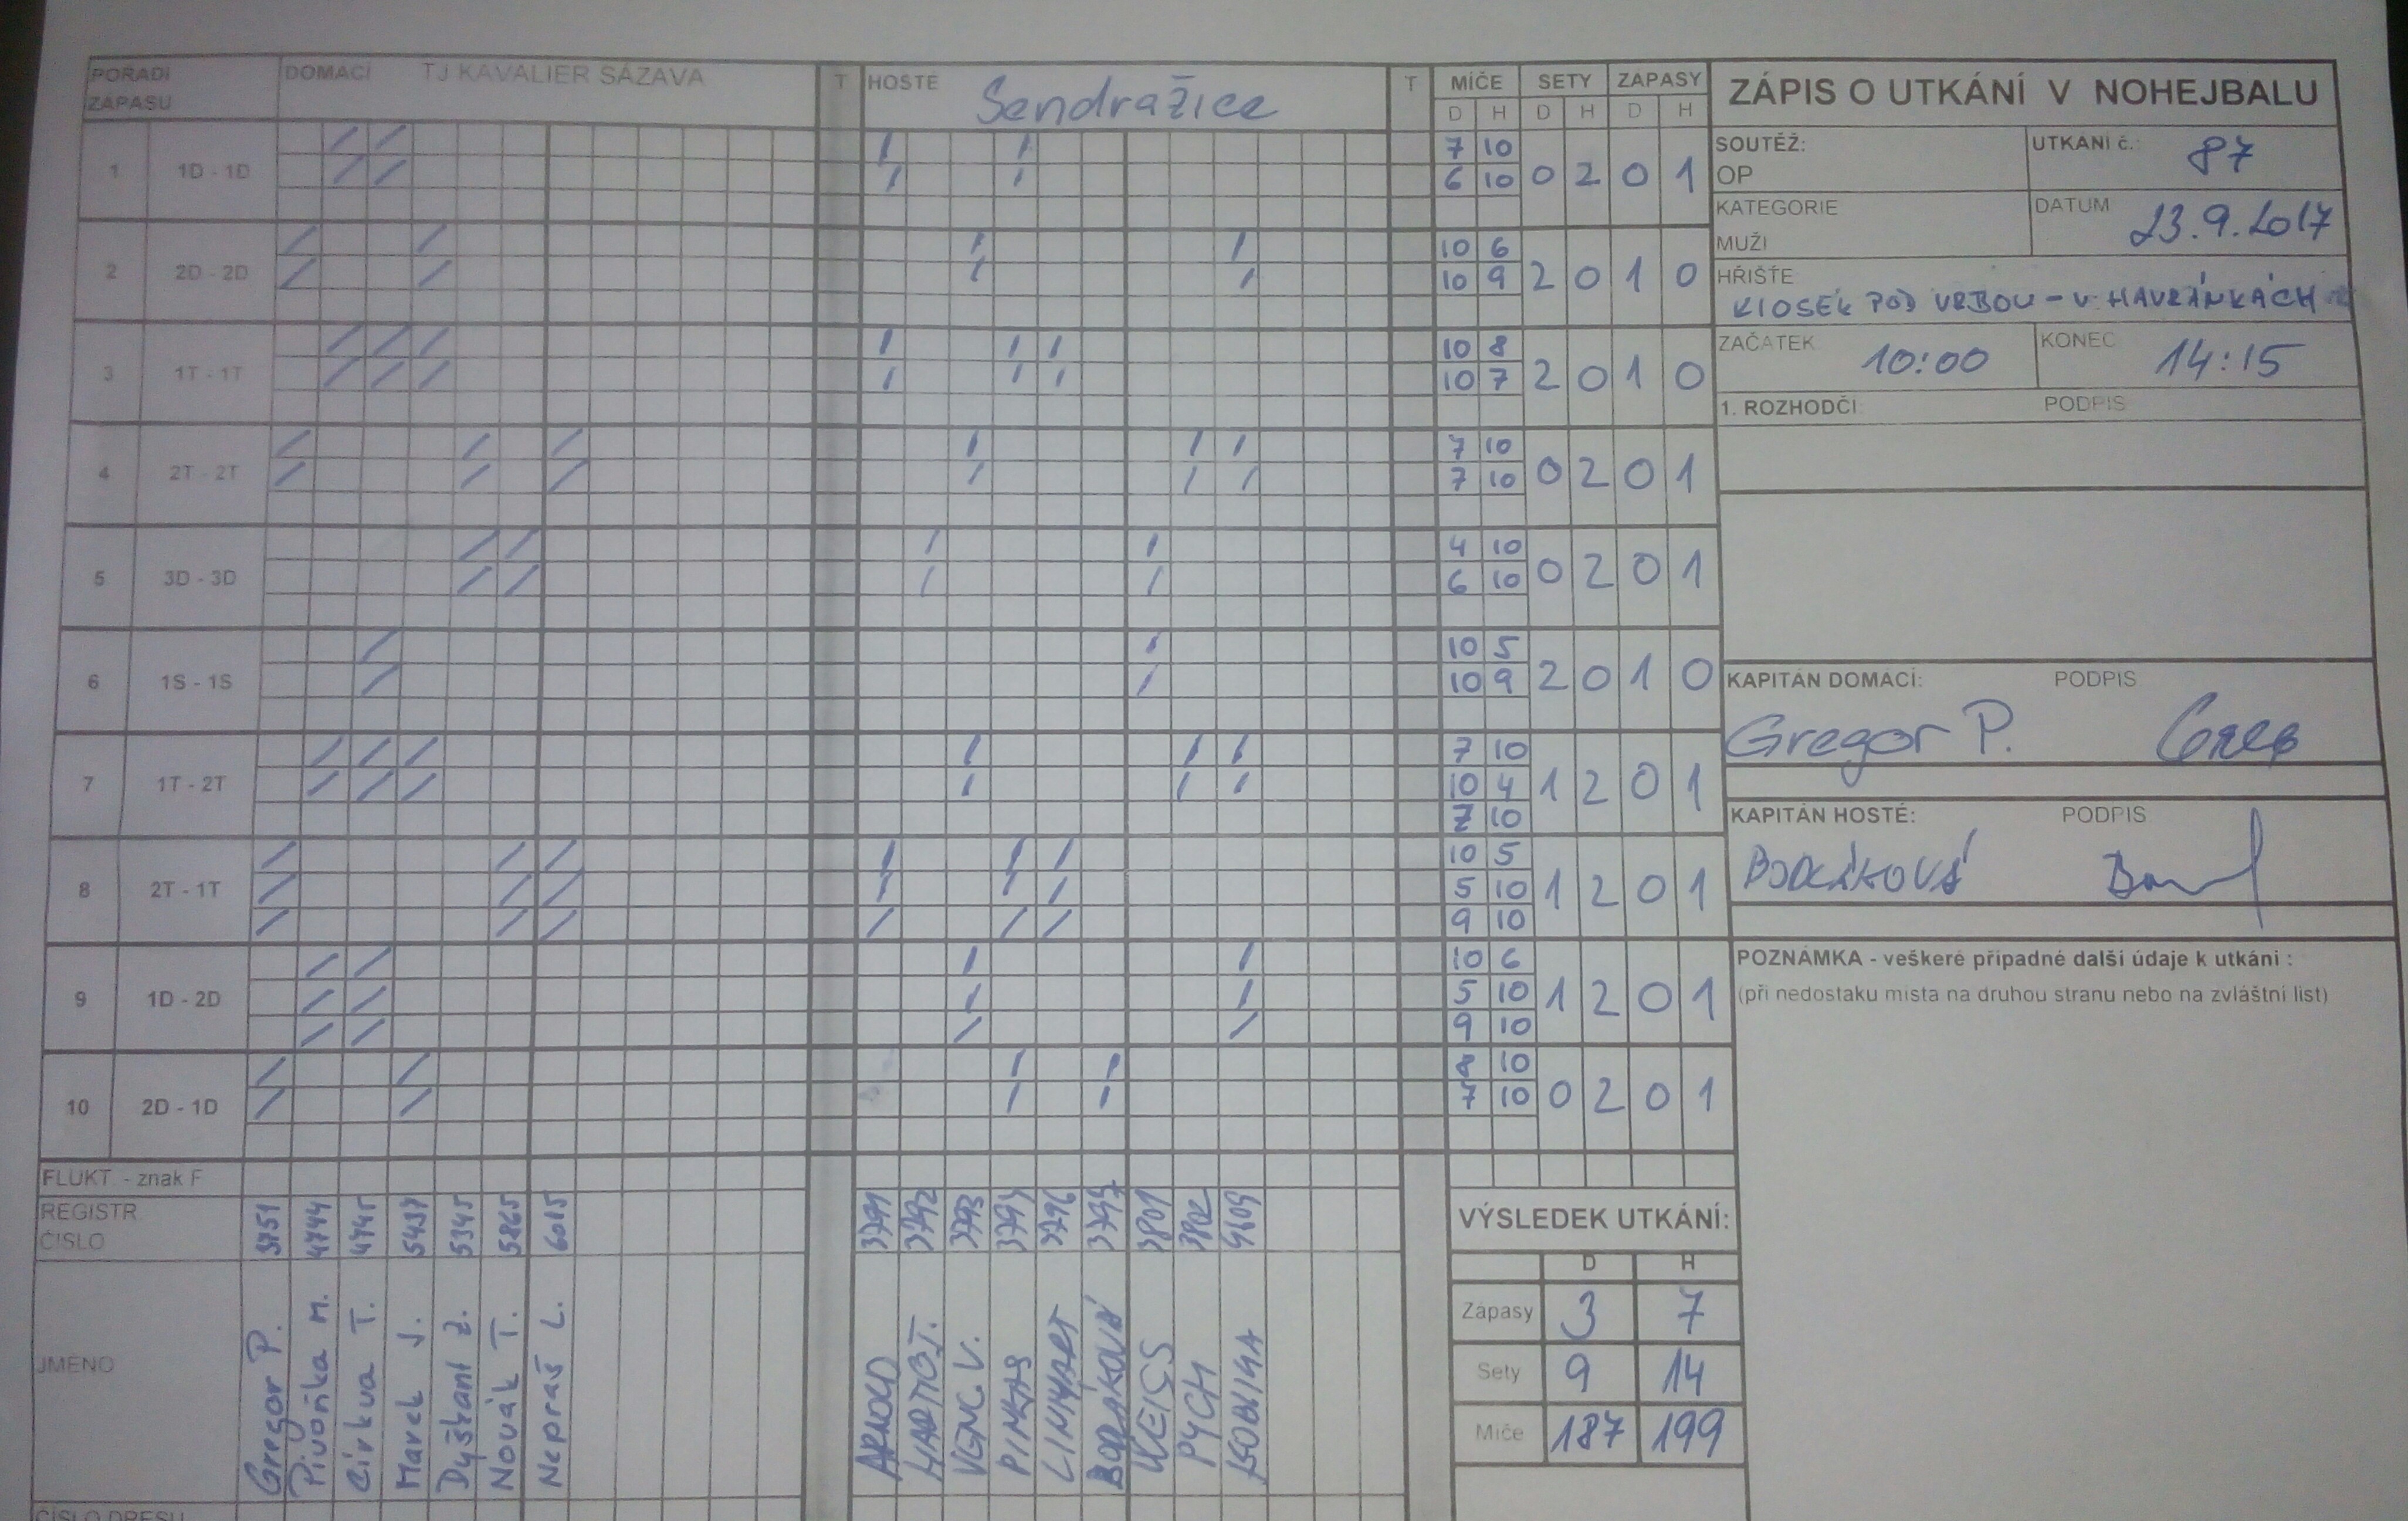 POŘADÍ ZÁPASU DOMACÍ TJ KAVALIER SÁZAVA T HOSTÉ Sendražice T MÍČE SETY ZÁPASY
D H D H D H
1 1D - 1D 7 10 0 2 0 1
6 10
2 2D - 2D 10 6 2 0 1 0
10 9
3 1T - 1T 10 8 2 0 1 0
10 7
4 2T - 2T 7 10 0 2 0 1
7 10
5 3D - 3D 4 10 0 2 0 1
6 10
6 1S - 1S 10 5 2 0 1 0
10 9
7 1T - 2T 7 10 1 2 0 1
10 4
7 10
8 2T - 1T 10 5 1 2 0 1
5 10
9 10
9 1D - 2D 10 6 1 2 0 1
5 10
9 10
10 2D - 1D 8 10 0 2 0 1
7 10
FLUKT - znak F
REGISTR. ČÍSLO 3751 4744 4745 5437 5345 5865 6015 3791 3792 3793 3796 3801 3802
JMÉNO Gregor P. Pivoňka M. Cirkva T. Marek J. Novák T. Nepraš L. VENC V. PYCH
ČÍSLO DRESU
ZÁPIS O UTKÁNÍ V NOHEJBALU
SOUTĚŽ: OP
UTKÁNÍ č.: 87
KATEGORIE MUŽI
DATUM 23.9.2017
HŘIŠTĚ
KIOSEK POD VRBOU - V HAVRÁNKÁCH
ZAČÁTEK 10:00 KONEC 14:15
1. ROZHODČÍ: PODPIS
KAPITÁN DOMÁCÍ: PODPIS
Gregor P.
KAPITÁN HOSTÉ: PODPIS
POZNÁMKA - veškeré případné další údaje k utkání :
(při nedostaku místa na druhou stranu nebo na zvláštní list)
VÝSLEDEK UTKÁNÍ:
D H
Zápasy 3 7
Sety 9 14
Míče 187 199